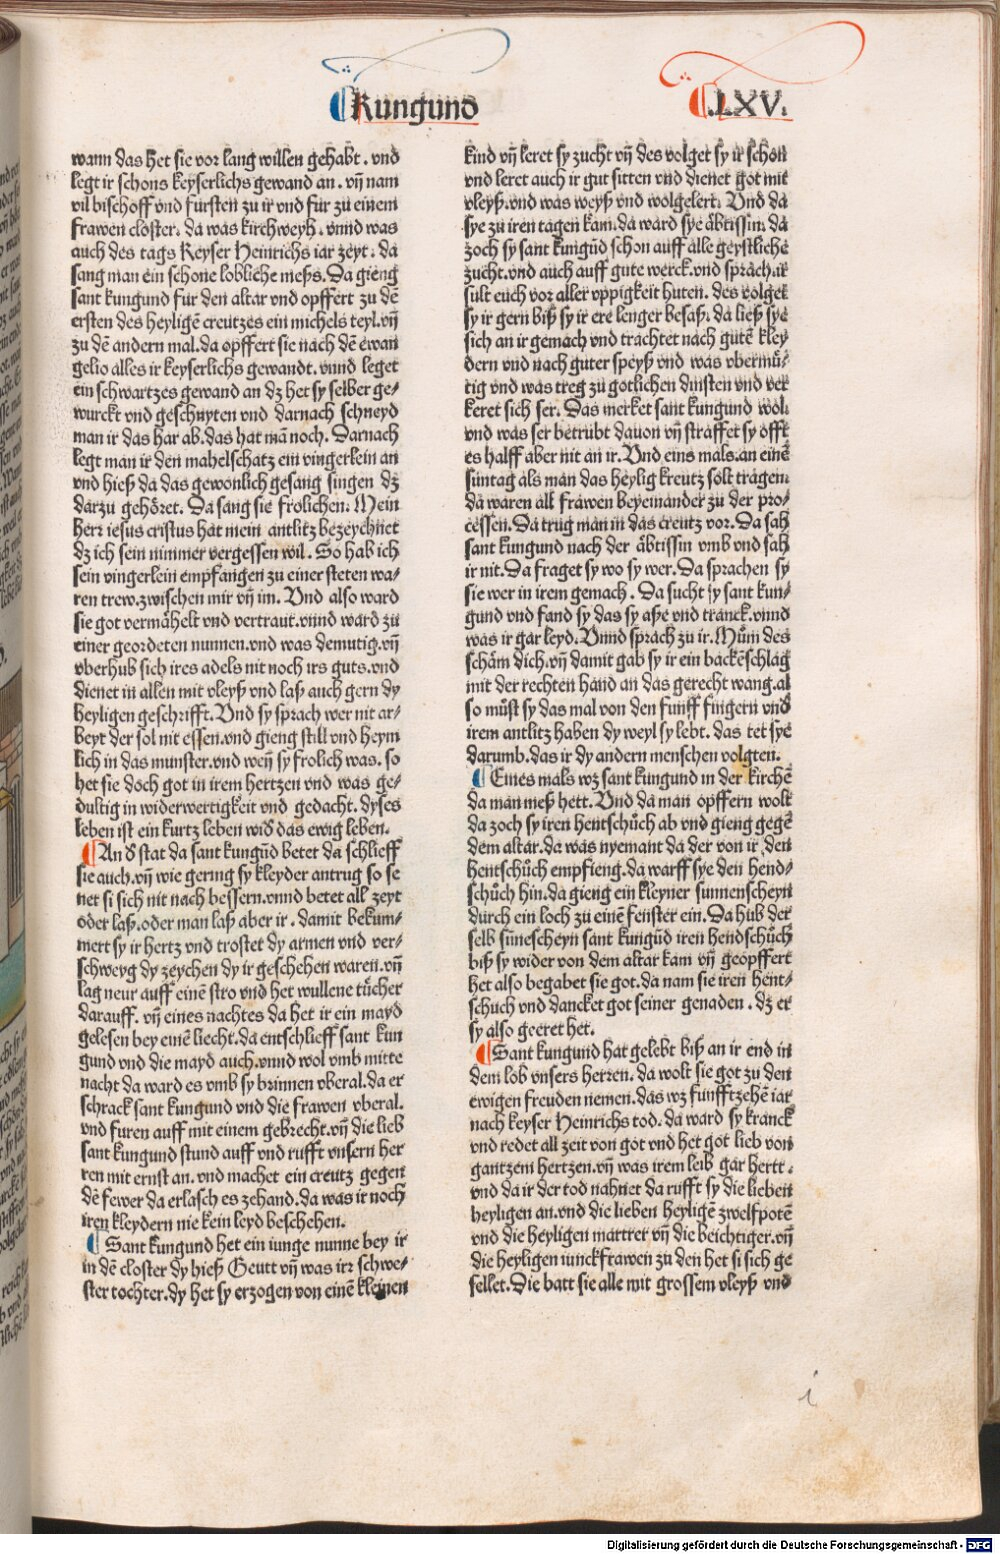 Kungund
.LXV.
wann das het sie vor lang willen gehabt. vnd
legt ir schons keyserlichs gewand an. vñ nam
vil bischoff vnd fursten zu ir vnd fur zu einem
frawen closter. da was kirchweyh. vnnd was
auch des tags Keyser Heinrichs iar zeyt. da
sang man ein schone lobliche mess. Da gieng
sant kungund für den altar vnd opffert zu dē
ersten des heyligē creutzes ein michels teyl. vñ
zu dē andern mal. da opffert sie nach dē ewan
gelio alles ir keyserlichs gewandt. vnnd leget
ein schwartzes gewand an dz het sy selber ge-
wurckt vnd geschnyten vnd darnach schneyd
man ir das har ab. das hat mā noch. Darnach
legt man ir den mahelschatz ein vingerlein an
vnd hieß da das gewonlich gesang singen dz
darzu gehöret. Da sang sie frolichen. Mein
herr iesus cristus hat mein antlitz bezeychnet
dz ich sein nimmer vergessen wil. So hab ich
sein vingerlein empfangen zu einer steten wa-
ren trew. zwischen mir vñ im. Vnd also ward
sie got vermähelt vnd vertraut. vnnd ward zu
einer geordeten nunnen. vnd was demutig. vñ
vberhub sich ires adels nit noch irs guts. vnd
dienet in allen mit vleyß vnd laß auch gern dy
heyligen geschrifft. Vnd sy sprach wer nit ar-
beyt der sol nit essen. vnd gieng still vnd heym
lich in das munster. vnd weñ sy frolich was. so
het sie doch got in irem hertzen vnd was ge-
dultig in widerwertigkeit vnd gedacht. dyses
leben ist ein kurtz leben wiđ das ewig leben.
An đ stat da sant kungūd betet da schlieff
sie auch. vñ wie gering sy kleyder antrug so se
net si sich nit nach bessern. vnnd betet all zeyt
oder laß. oder man laß aber ir. damit bekum-
mert sy ir hertz vnd trostet dy armen vnd ver-
schweyg dy zeychen dy ir geschehen waren. vñ
lag neur auff einē stro vnd het wullene tücher
darauff. vñ eines nachtes da het ir ein mayd
gelesen bey einē liecht. da entschlieff sant kun
gund vnd die mayd auch. vnnd wol vmb mitte
nacht da ward es vmb sy brinnen vberal. da er
schrack sant kungund vnd die frawen vberal.
vnd furen auff mit einem gebrecht. vñ die lieb
sant kungund stund auff vnd rufft vnsern her
ren mit ernst an. vnd machet ein creutz gegen
dē fewer da erlasch es zehand. da was ir noch
iren kleydern nie kein leyd beschehen.
Sant kungund het ein iunge nunne bey ir
in dē closter dy hieß Geutt vñ was irr schwe-
ster tochter. dy het sy erzogen von einē kleinen
kind vñ leret sy zucht vñ des volget sy ir schön
vnd leret auch ir gut sitten vnd dienet got mit
vleyß. vnd was weyß vnd wolgelert. Vnd da
sye zu iren tagen kam. da ward sye äbtissin. da
zoch sy sant kungūd schon auff alle geystliche
zucht. vnd auch auff gute werck. vnd sprach. ir
sült euch vor aller vppigkeit huten. des volget
sy ir gern biß sy ir ere lenger besaß. da ließ sye
sich an ir gemach vnd trachtet nach gutē kley
dern vnd nach guter speyß vnd was vbermü-
tig vnd was treg zu gotlichen dinsten vnd ver
keret sich ser. Das merket sant kungund wol.
vnd was ser betrübt dauon vñ straffet sy offt
es halff aber nit an ir. Vnd eins mals. an einē
suntag als man das heylig kreutz solt tragen.
da waren all frawen beyeinander zu der pro-
cessen. Da trug man in das creutz vor. Da sah
sant kungund nach der äbtissin vmb vnd sah
ir nit. Da fraget sy wo sy wer. Da sprachen sy
sie wer in irem gemach. Da sucht sy sant kun-
gund vnd fand sy das sy aße vnd tranck. vnnd
was ir gar leyd. Vnnd sprach zu ir. Mům des
schäm dich. vñ damit gab sy ir ein backēschlag
mit der rechten hand an das gerecht wang. al
so můst sy das mal von den funff fingern vnd
irem antlitz haben dy weyl sy lebt. das tet sye
darumb. das ir dy andern menschen volgten.
Eines mals wz sant kungund in der kirchē
da man meß hett. Vnd da man opffern wolt
da zoch sy iren hentschůch ab vnd gieng gegē
dem altar. da was nyemant da der von ir den
hentschůch empfieng. da warff sye den hend-
schůch hin. da gieng ein kleyner sunnenscheyn
durch ein loch zu einē fenster ein. Da hub der
selb sūnescheyn sant kungūd iren hendschůch
biß sy wider von dem altar kam vñ geopffert
het also begabet sie got. da nam sie iren hent-
schuch vnd dancket got seiner genaden. dz er
sy also geeret het.
Sant kungund hat gelebt biß an ir end in
dem lob vnsers herren. da wolt sie got zu den
ewigen freuden nemen. das wz funfftzehē iar
nach keyser Heinrichs tod. da ward sy kranck
vnd redet all zeit von got vnd het got lieb von
gantzem hertzen. vñ was irem leib gar hertt.
vnd da ir der tod nahnet da rufft sy die lieben
heyligen an. vnd die lieben heyligē zwelfpotē
vnd die heyligen mattrer vñ die beichtiger. vñ
die heyligen iunckfrawen zu den het si sich ge
sellet. Die batt sie alle mit grossem vleyß vnd
i
Digitalisierung gefördert durch die Deutsche Forschungsgemeinschaft - DFG